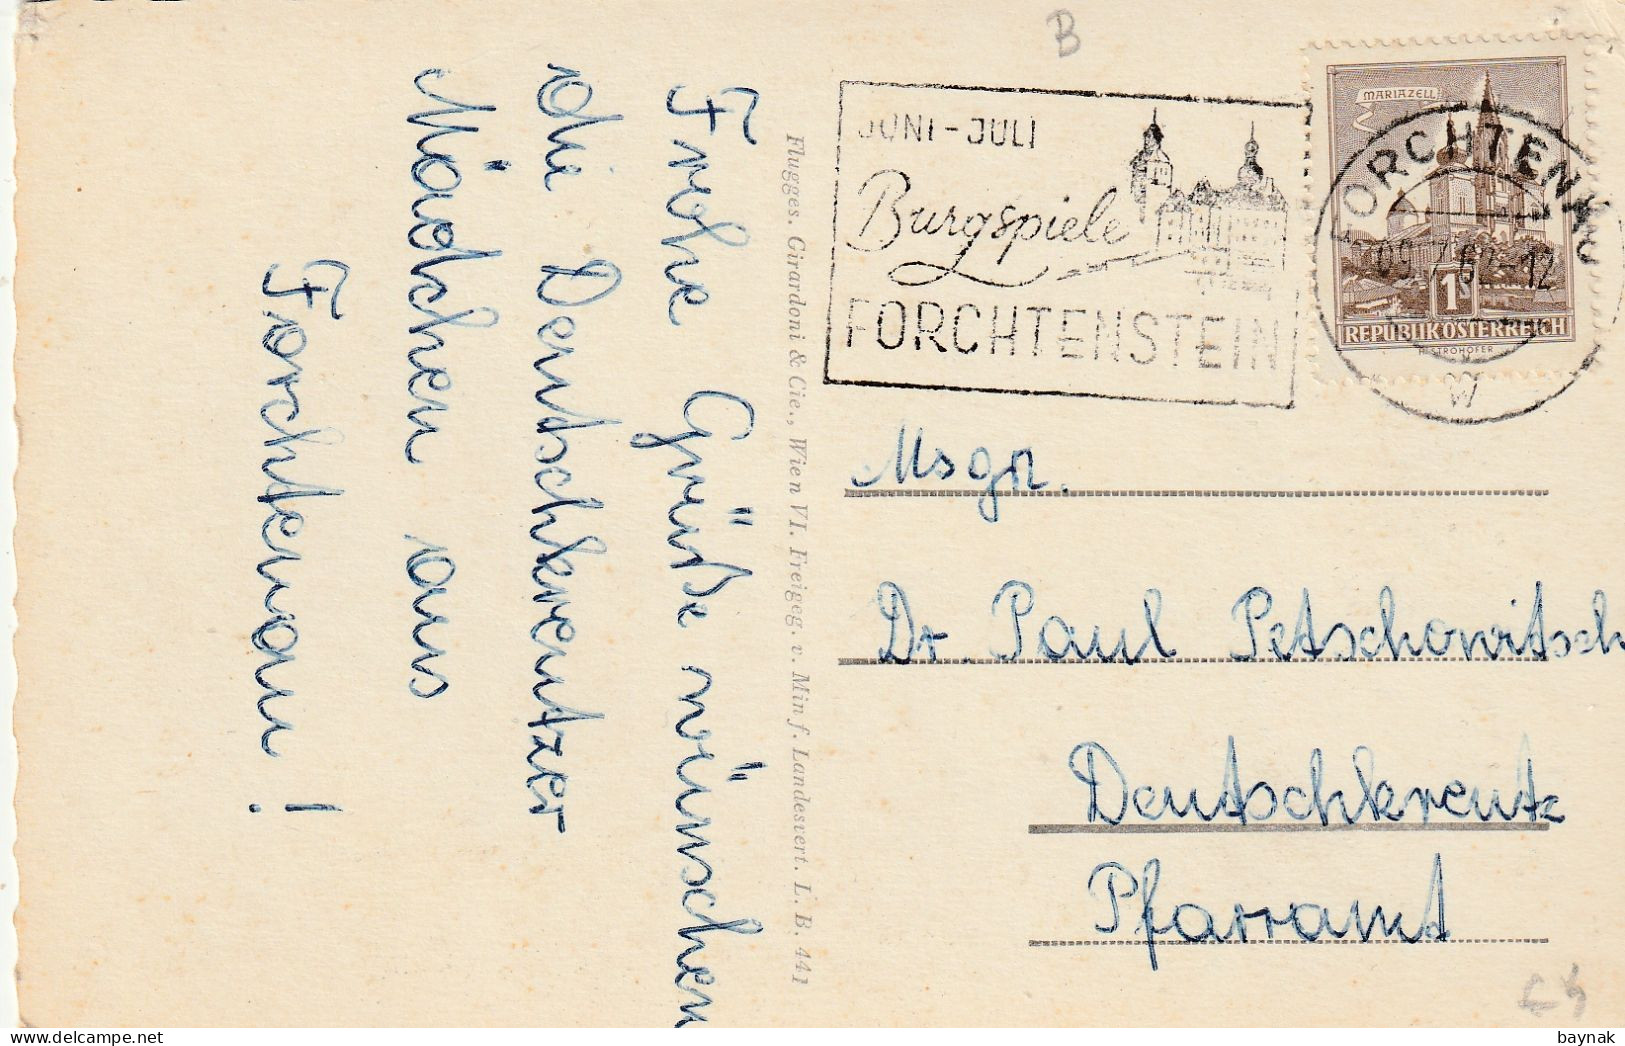 Frohe Grüße wünschen
die Deutschkreutzer
Mädchen aus
Forchtenau!
Flugges. Girardoni & Cie., Wien VI. Freigeg. v. Min f. Landesvert. L. B. 441
B
JUNI-JULI
Burgspiele
FORCHTENSTEIN
MARIAZELL
FORCHTENAU
1S
REPUBLIK ÖSTERREICH
H. STROHOFER
Msgr.
Dr. Paul Petschowitsch
Deutschkreutz
Pfarramt
baynak